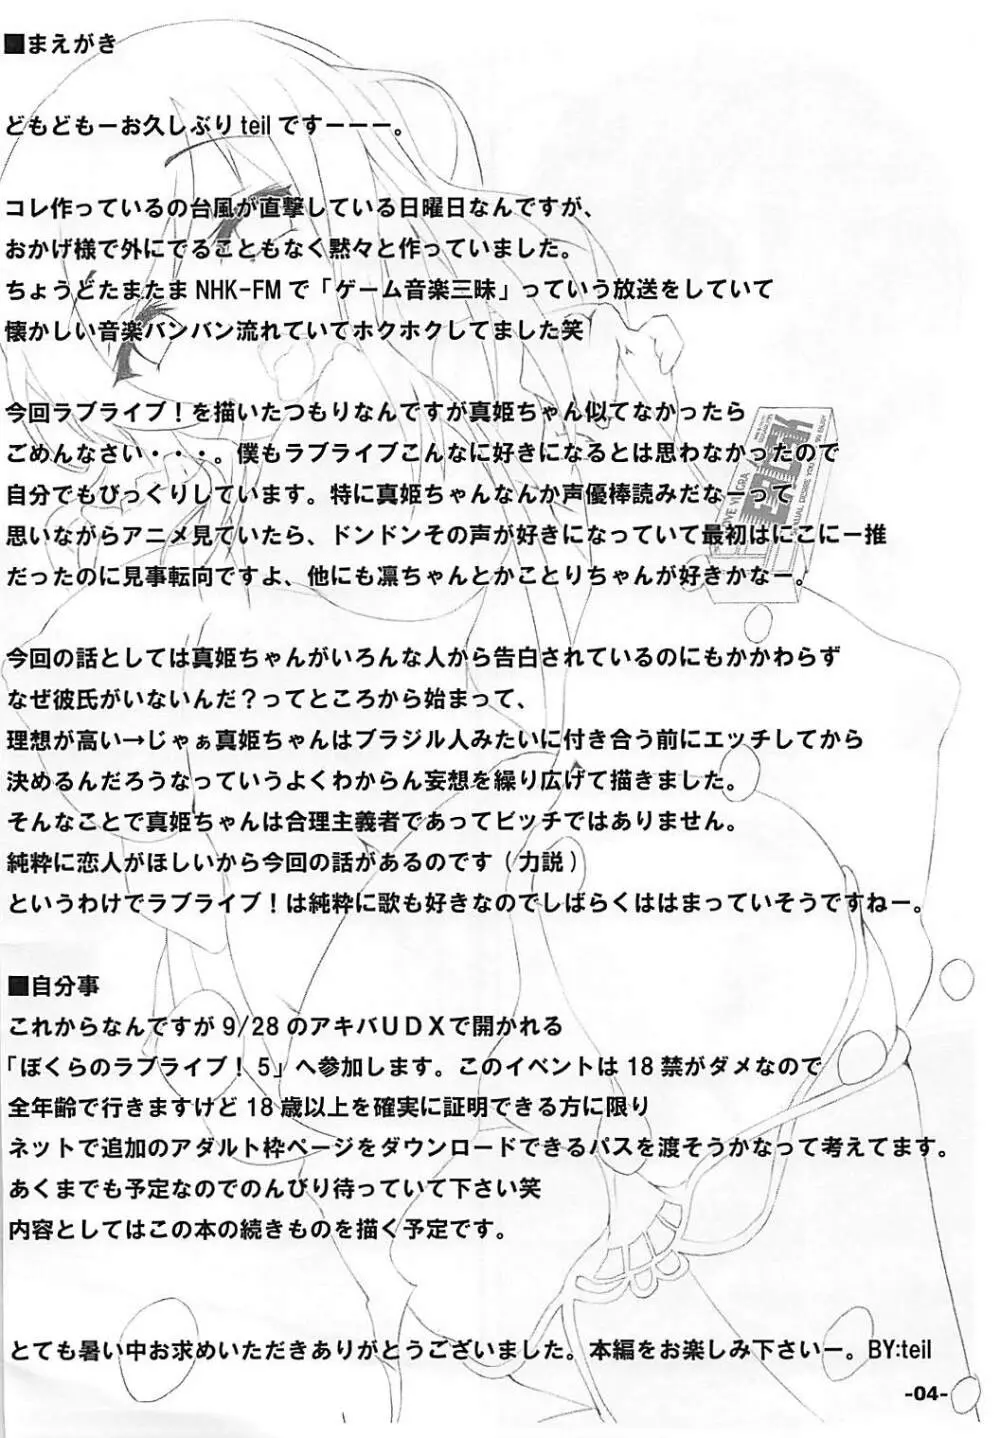 ■まえがき
どもどもーお久しぶりteilですーーー。
コレ作っているの台風が直撃している日曜日なんですが、
おかげ様で外にでることもなく黙々と作っていました。
ちょうどたまたまNHK-FMで「ゲーム音楽三昧」っていう放送をしていて
懐かしい音楽バンバン流れていてホクホクしてました笑
今回ラブライブ！を描いたつもりなんですが真姫ちゃん似てなかったら
ごめんなさい・・・。僕もラブライブこんなに好きになるとは思わなかったので
自分でもびっくりしています。特に真姫ちゃんなんか声優棒読みだなーって
思いながらアニメ見ていたら、ドンドンその声が好きになっていて最初はにこに一推
だったのに見事転向ですよ、他にも凛ちゃんとかことりちゃんが好きかなー。
今回の話としては真姫ちゃんがいろんな人から告白されているのにもかかわらず
なぜ彼氏がいないんだ？ってところから始まって、
理想が高い→じゃぁ真姫ちゃんはブラジル人みたいに付き合う前にエッチしてから
決めるんだろうなっていうよくわからん妄想を繰り広げて描きました。
そんなことで真姫ちゃんは合理主義者であってビッチではありません。
純粋に恋人がほしいから今回の話があるのです（力説）
というわけでラブライブ！は純粋に歌も好きなのでしばらくははまっていそうですねー。
■自分事
これからなんですが9/28のアキバUDXで開かれる
「ぼくらのラブライブ！5」へ参加します。このイベントは18禁がダメなので
全年齢で行きますけど18歳以上を確実に証明できる方に限り
ネットで追加のアダルト枠ページをダウンロードできるパスを渡そうかなって考えてます。
あくまでも予定なのでのんびり待っていて下さい笑
内容としてはこの本の続きものを描く予定です。
とても暑い中お求めいただきありがとうございました。本編をお楽しみ下さいー。BY:teil
-04-